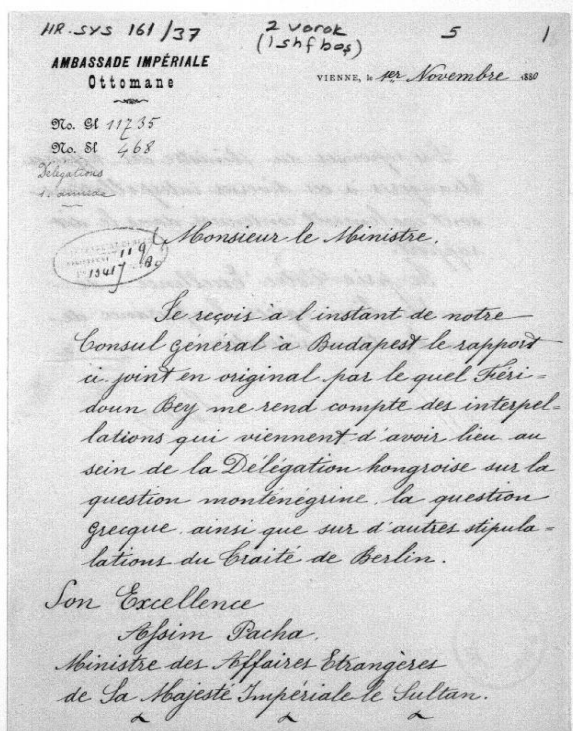 HR.SYS 161/37
2 varak
(1 shf boş)
5
1
AMBASSADE IMPÉRIALE
Ottomane
VIENNE, le 1er Novembre 1880
No. Gl 11735
No. Sl 468
Délégations
1. annexe
119
13417
Monsieur le Ministre.
Je reçois à l'instant de notre
Consul général à Budapest le rapport
ci joint en original par le quel Féri=
doun Bey me rend compte des interpel=
lations qui viennent d'avoir lieu au
sein de la Délégation hongroise sur la
question monténégrine, la question
Grecque, ainsi que sur d'autres stipula=
lations du Traité de Berlin.
Son Excellence
Assim Pacha.
Ministre des Affaires Etrangères
de Sa Majesté Impériale le Sultan.